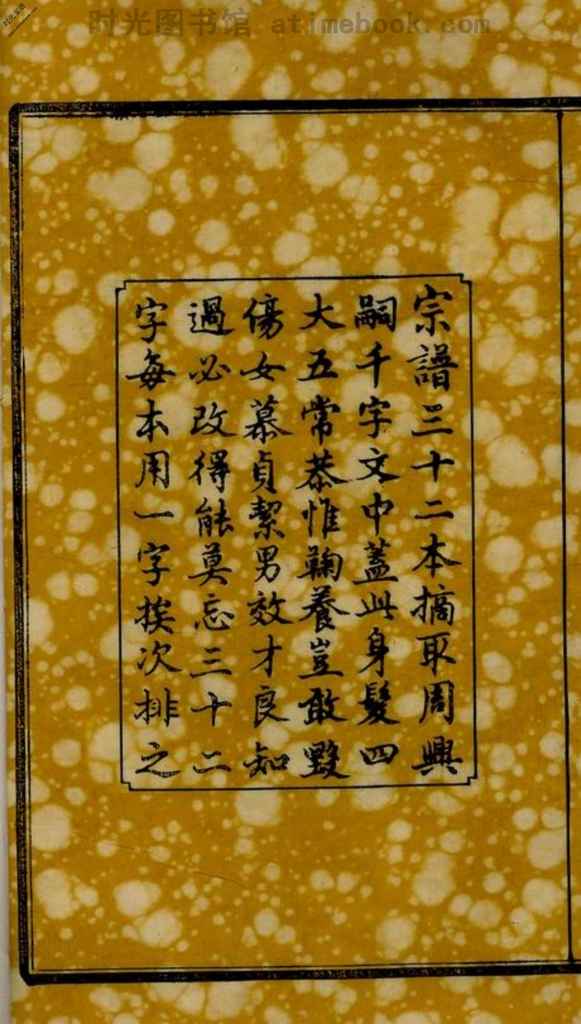 时光图书馆 atimebook.com
宗譜三十二本摘取周興
嗣千字文中蓋此身髮四
大五常恭惟鞠養豈敢毀
傷女慕貞絜男效才良知
過必改得能莫忘三十二
字每本用一字挨次排之